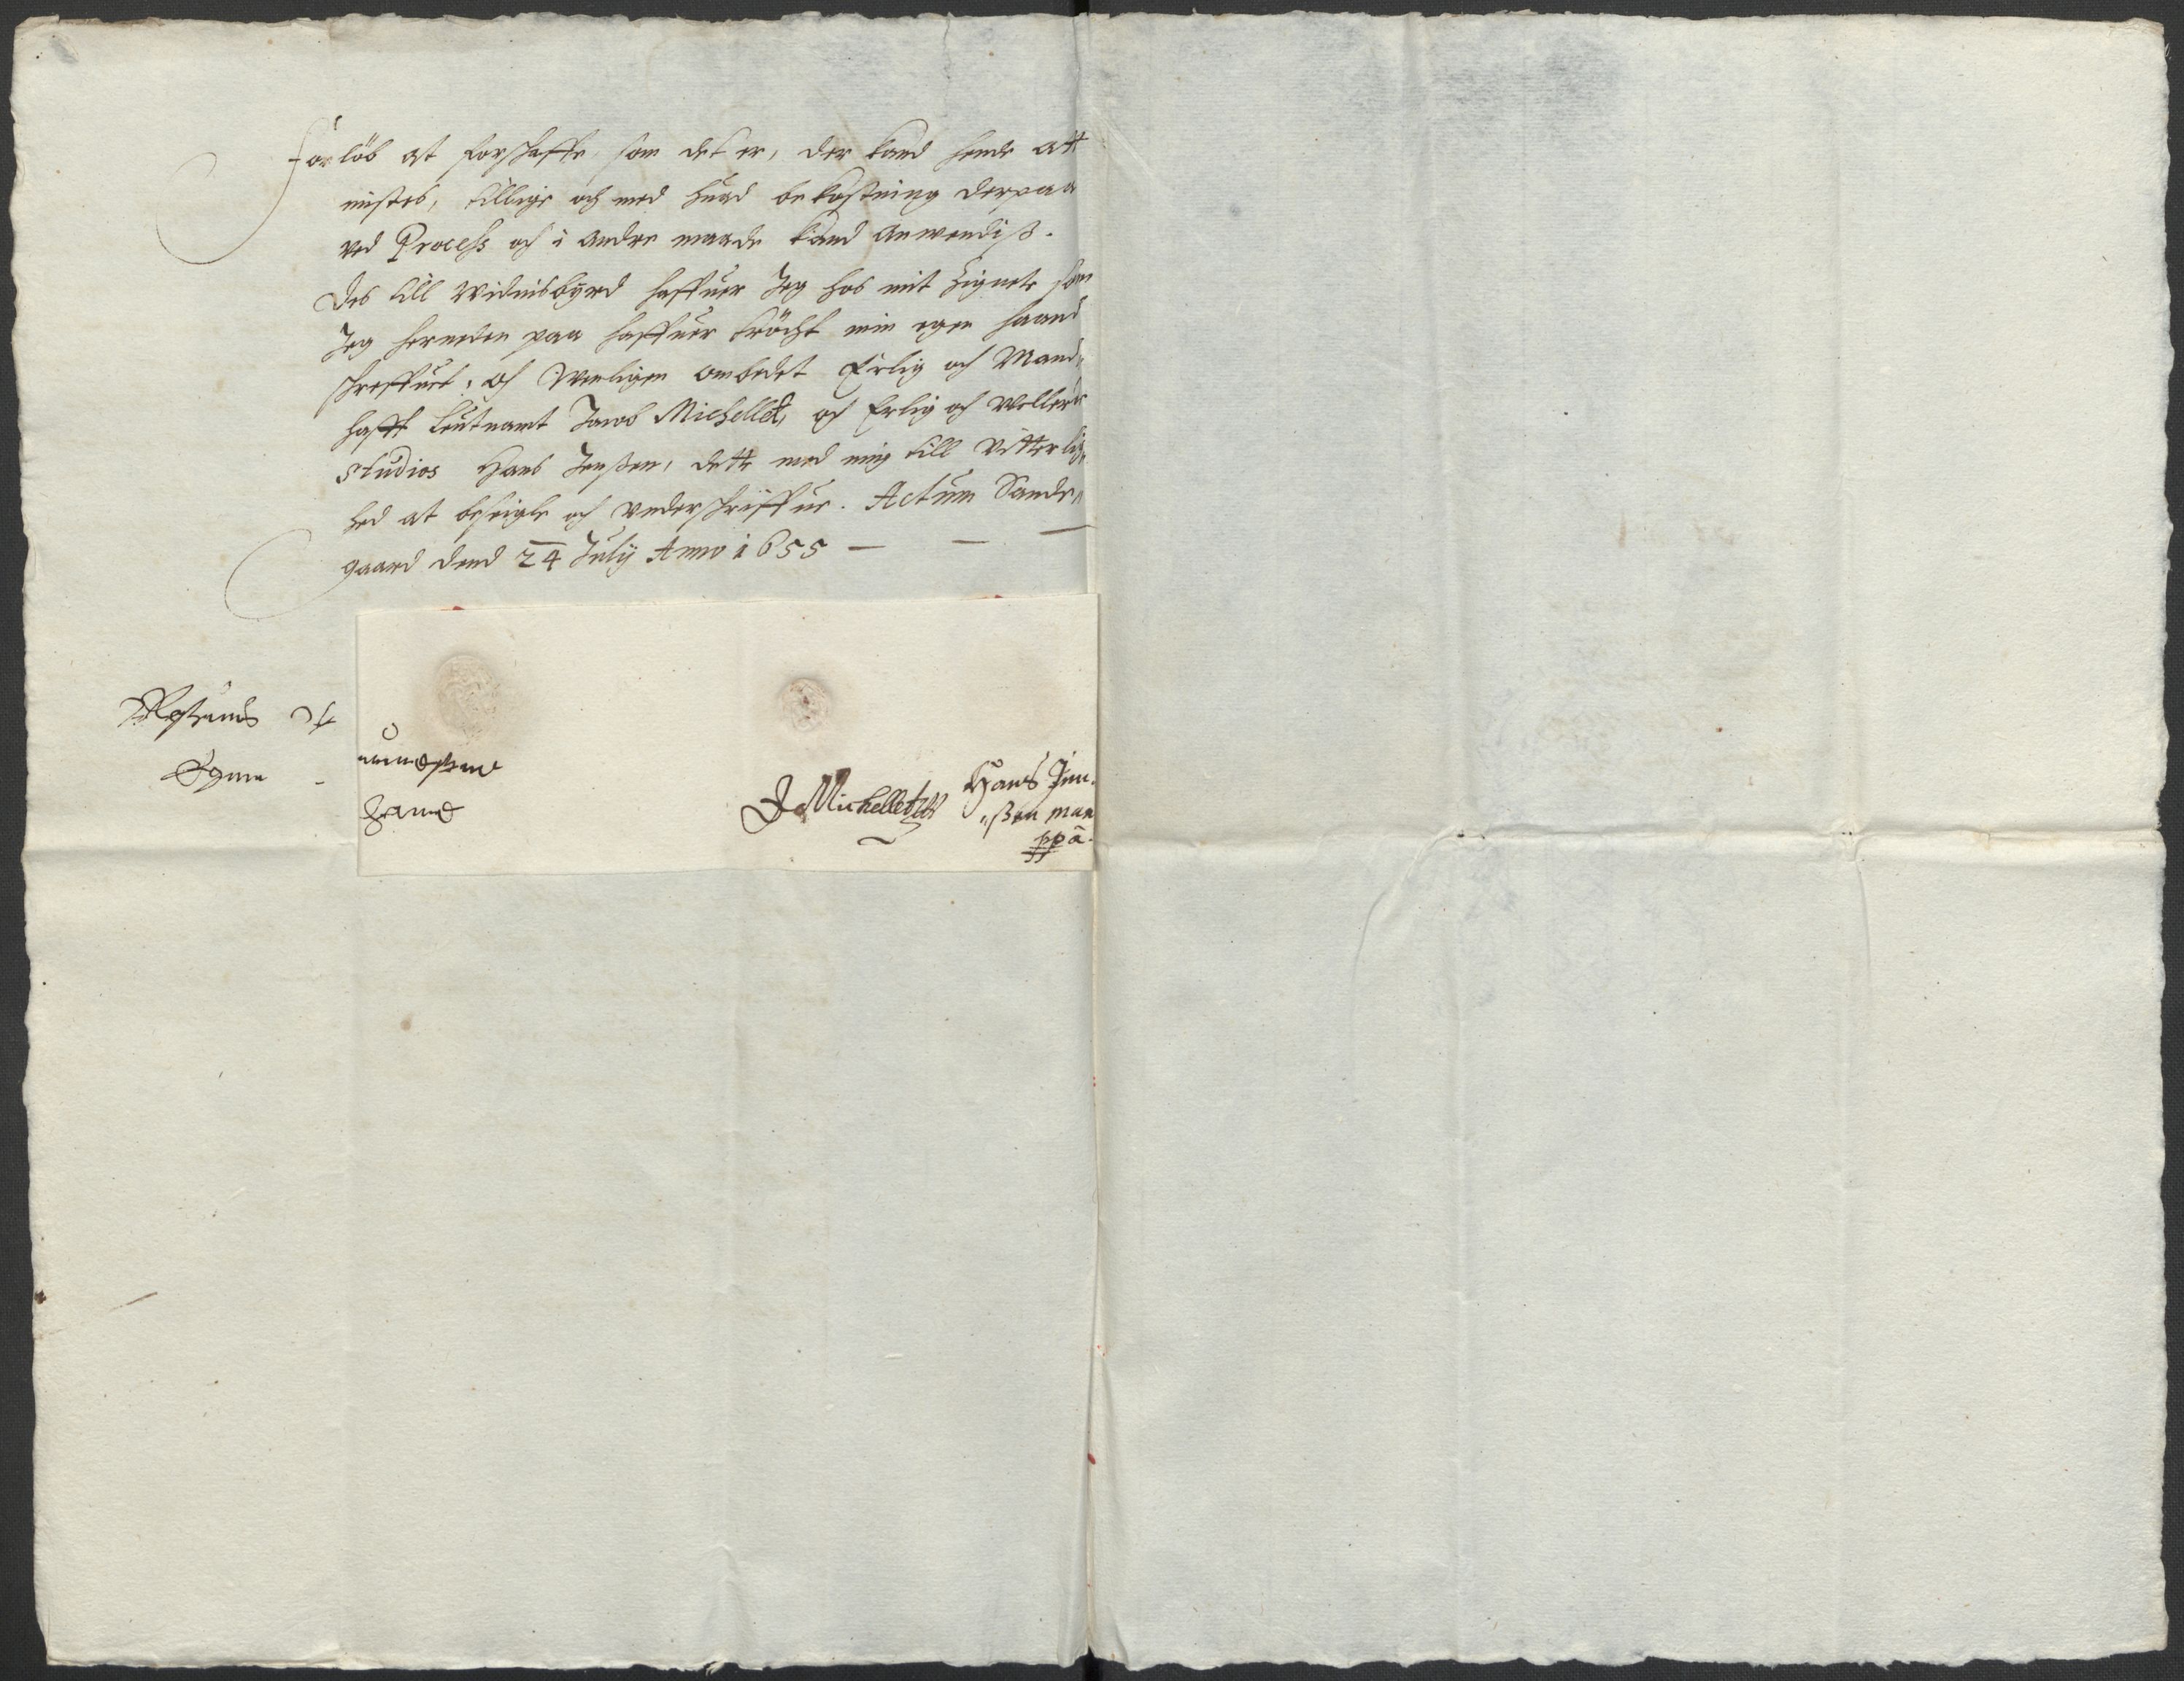 forløb at forschaffe, som det er, der kand hende att
mistes, tillige och med huad bekostning derpaa
ved Process och i andre maade kand anwendiß.
Des till widnisbyrd haffuer Jeg hos mit Zignete som
Jeg herneden paa haffuer tröcht min egen haand
schreffuet, och wenligen ombedet Erlig och Mand„
hafft Leutnamt Jacob Michellet, och Erlig och wellerde
studios Hans Jenßen, dette med mig till vitterlig„
hed at beseigle och vnderschriffue. Actum Sande„
gaard dend 24 July Anno 1655 — — —
Egen
haand
J Michellet
Hans Jen„
„ßen man
ppa.